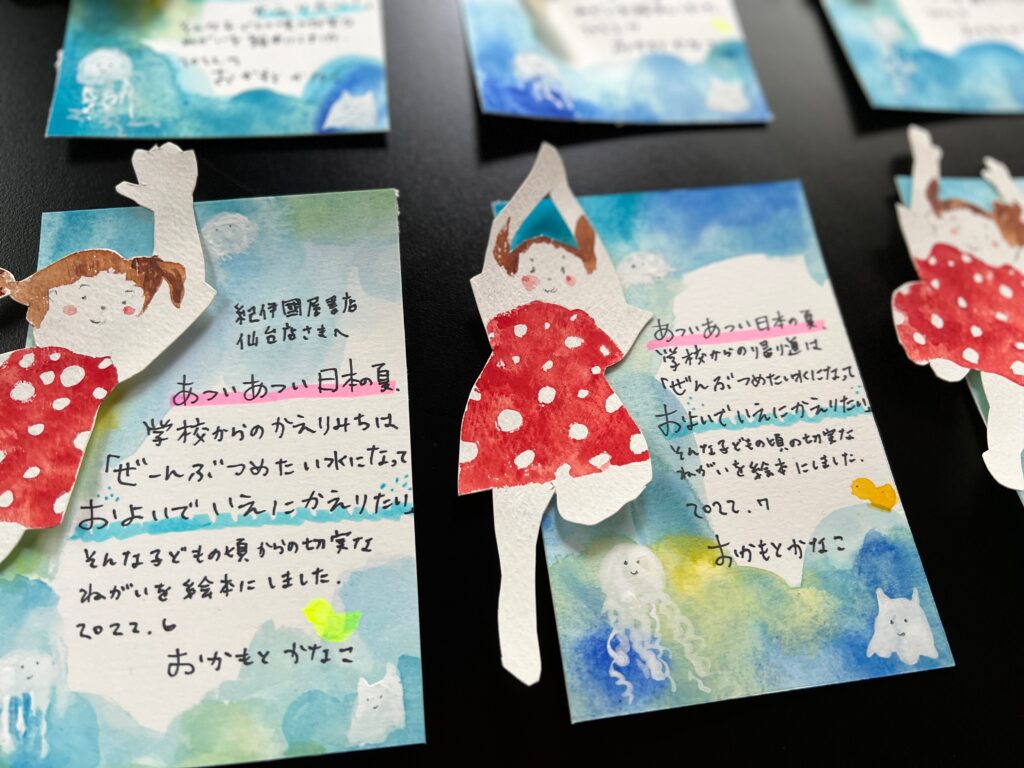 ねがいを絵本にしました.
紀伊國屋書店
仙台店さまへ
あついあつい日本の夏、
学校からのかえりみちは
「ぜーんぶつめたい水になって
およいでいえにかえりたい」
そんな子どもの頃からの切実な
ねがいを絵本にしました.
2022.6
おかもとかなこ
あついあつい日本の夏、
学校からのの帰り道は
「ぜんぶつめたい水になって
およいでいえにかえりたい」
そんな子どもの頃の切実な
ねがいを絵本にしました.
2022.7
おかもとかなこ